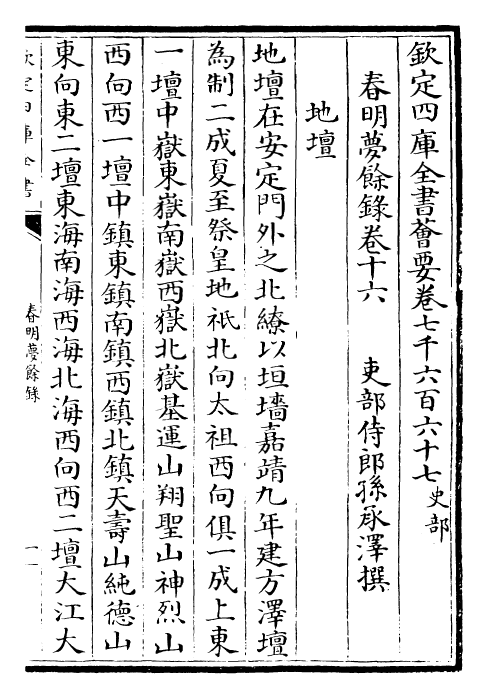 欽定四庫全書薈要卷七千六百六十七史部
春明夢餘錄卷十六　　吏部侍郎孫承澤撰
地壇
地壇在安定門外之北繚以垣墻嘉靖九年建方澤壇
為制二成夏至祭皇地祇北向太祖西向俱一成上東
一壇中嶽東嶽南嶽西嶽北嶽基運山翔聖山神烈山
西向西一壇中鎮東鎮南鎮西鎮北鎮天壽山純德山
東向東二壇東海南海西海北海西向西二壇大江大
欽定四庫全書
春明夢餘錄
一